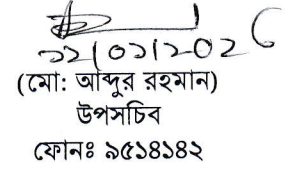 ২২/০১/২০২৬
(মো: আব্দুর রহমান)
উপসচিব
ফোনঃ ৯৫১৪১৪২